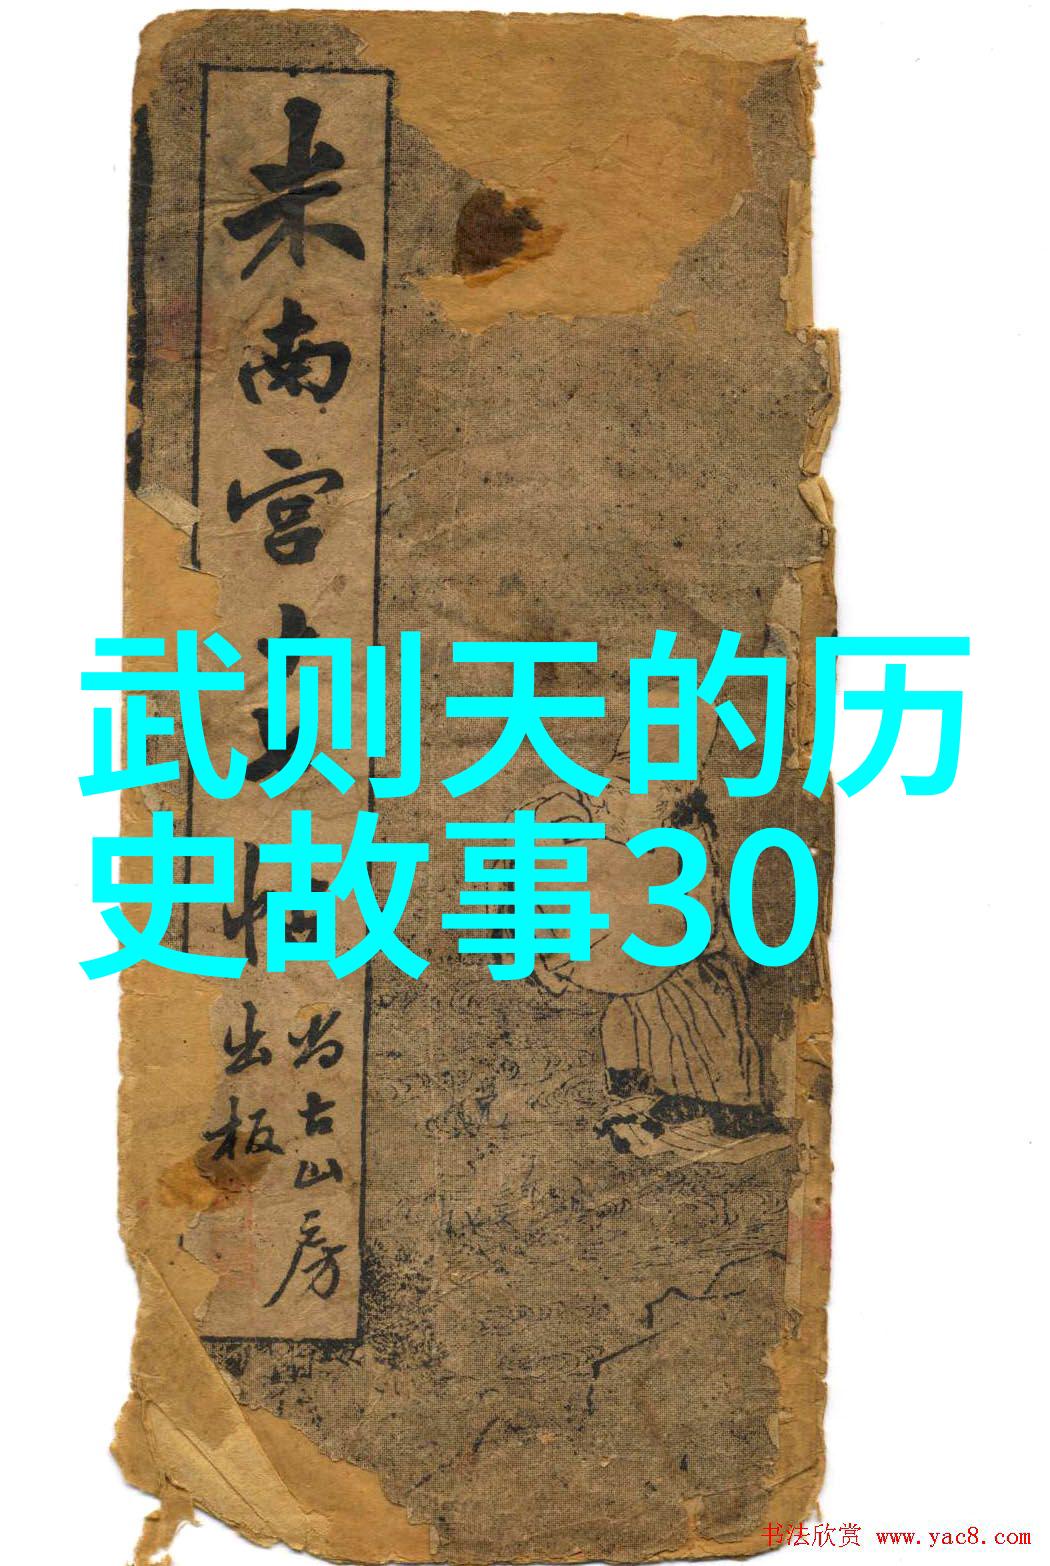 米南宫
尚古山房
出板
武则天的历
史故事30
书法欣赏 www.yac8.com